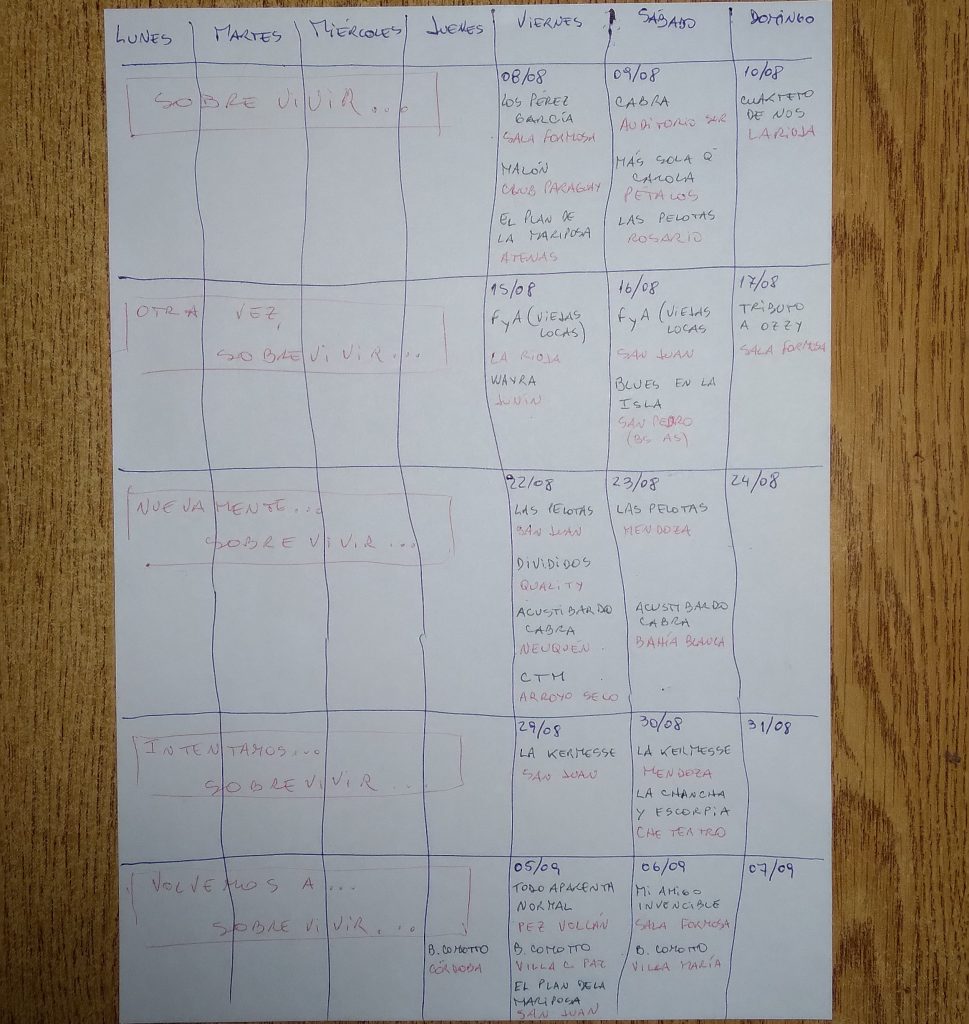 LUNES MARTES MIÉRCOLES JUEVES VIERNES SÁBADO DOMINGO
SOBRE VIVIR...
08/08
LOS PÉREZ
GARCÍA
SALA FORMOSA
MALÓN
CLUB PARAGUAY
EL PLAN DE
LA MARIPOSA
ATENAS
09/08
CABRA
AUDITORIO SUR
MÁS SOLA Q
CAROLA
PÉTALOS
LAS PELOTAS
ROSARIO
10/08
CUARTETO
DE NOS
LA RIOJA
OTRA VEZ,
SOBREVIVIR...
15/08
FyA (VIEJAS
LOCAS)
LA RIOJA
WAYRA
JUNÍN
16/08
FyA (VIEJAS
LOCAS
SAN JUAN
BLUES EN LA
ISLA
SAN PEDRO
(BS AS)
17/08
TRIBUTO
A OZZY
SALA FORMOSA
NUEVAMENTE...
SOBRE VIVIR...
22/08
LAS PELOTAS
SAN JUAN
DIVIDIDOS
QUALITY
ACUSTIBARDO
CABRA
NEUQUÉN
CTM
ARROYO SECO
23/08
LAS PELOTAS
MENDOZA
ACUSTIBARDO
CABRA
BAHÍA BLANCA
24/08
INTENTAMOS...
SOBRE VIVIR...
29/08
LA KERMESSE
SAN JUAN
30/08
LA KERMESSE
MENDOZA
LA CHANCHA
Y ESCORPIA
CHE TEATRO
31/08
VOLVEMOS A...
SOBRE VIVIR...
B. COMOTTO
CÓRDOBA
05/09
TODO APARENTA
NORMAL
PEZ VOLCÁN
B. COMOTTO
VILLA C PAZ
EL PLAN DE LA
MARIPOSA
SAN JUAN
06/09
MI AMIGO
INVENCIBLE
SALA FORMOSA
B. COMOTTO
VILLA MARÍA
07/09